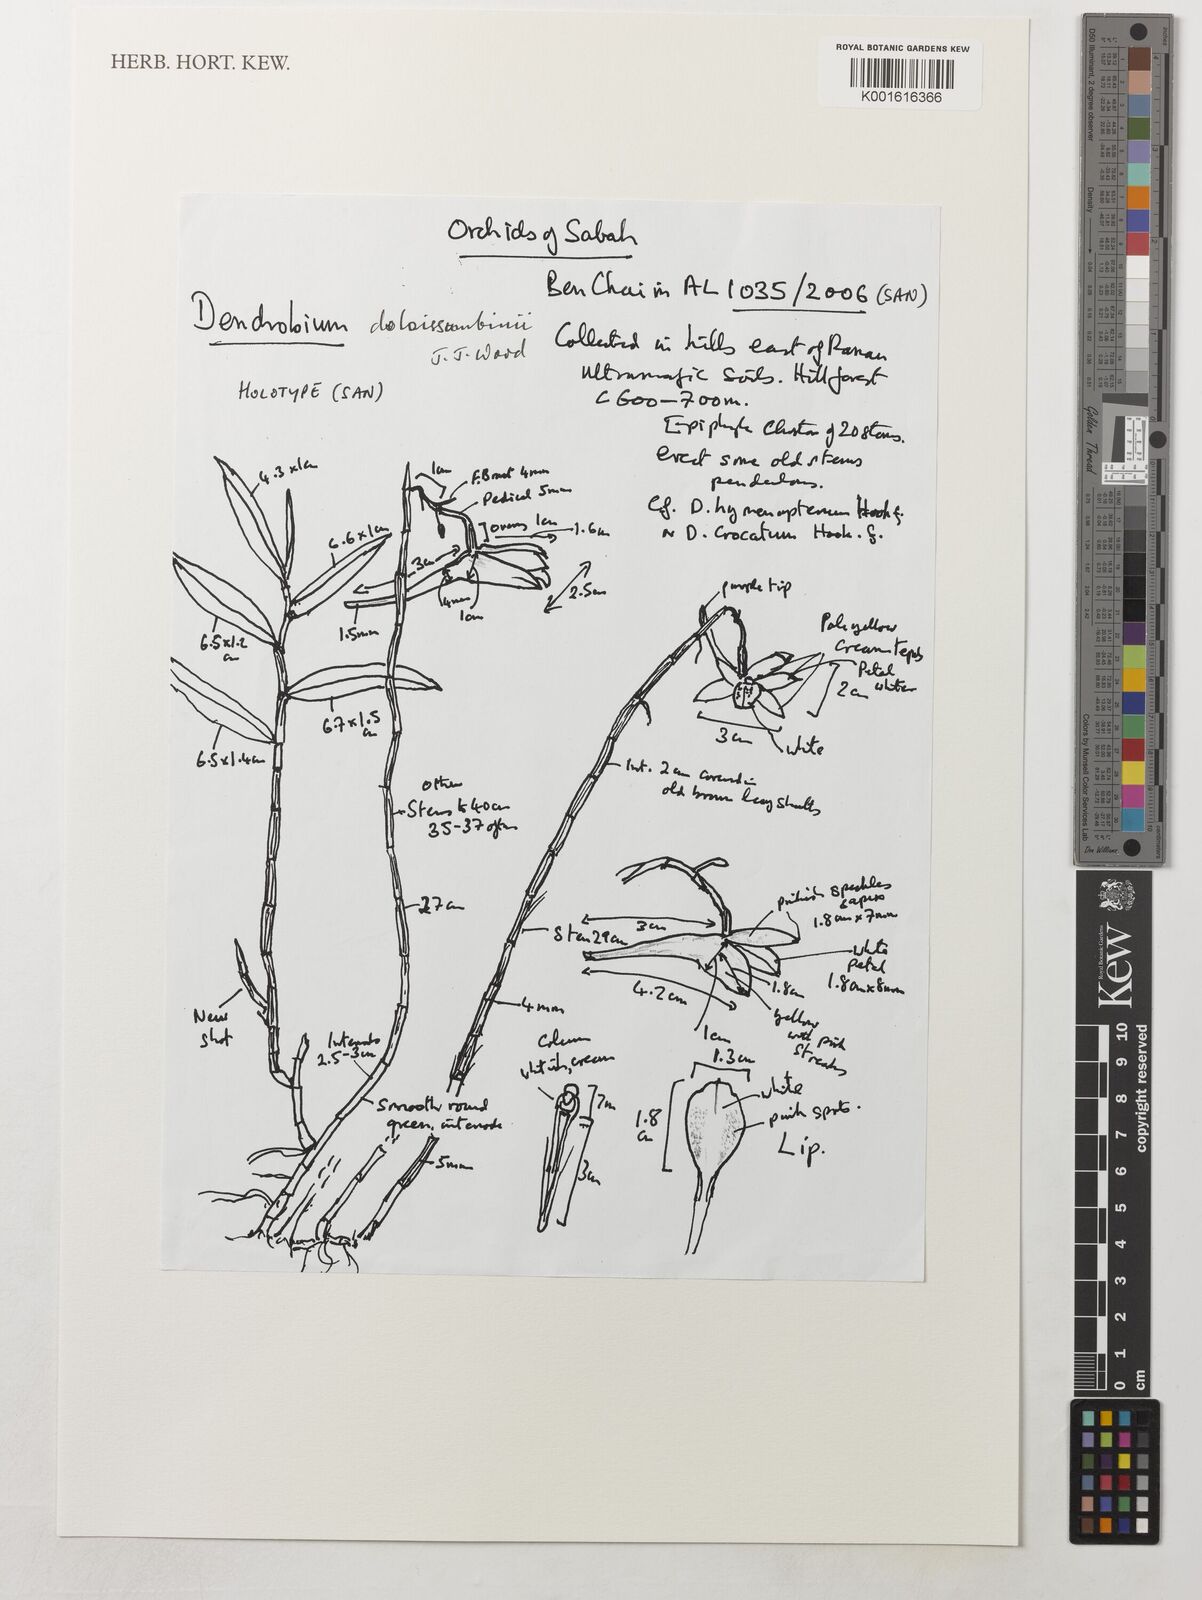 HERB. HORT. KEW.
ROYAL BOTANIC GARDENS KEW
K001616366
Orchids of Sabah
Ben Chain AL 1035/2006 (SAN)
Dendrobium
J.J. Wood
HOLOTYPE (SAN)
Collected in hills east of Ranau
Ultramafic Soils. Hill forest
c 600-700m.
Epiphyte Cluster of 20 stems.
erect some old stems
pendulous.
Cf. D. hymenopterum Hook f.
~ D. Crocatum Hook. f.
4.3 x 1cm
1cm
F. Bract 4mm
Pedical 5mm
1cm
1.6cm
6.6 x 1cm
3cm
2.5cm
4mm
1cm
1.5mm
6.5 x 1.2
cm
6.7 x 1.5
cm
6.5 x 1.4cm
purple tip
Pale yellow
cream
Petal
white
2cm
3cm
white
Int. 2cm
old brown leaf sheaths
Other
Stems to 40cm
35-37 often
27cm
Stem 29cm
3cm
pinkish speckles
1.8cm x 7mm
white
Petal
1.8cm x 8mm
1.8cm
4.2cm
yellow
with pink
streaks
1cm
New
shoot
Internode
2.5-3cm
4mm
Column
whitish, cream
Smooth round
green, internode
5mm
3cm
1.3cm
1.8
cm
white
pink spots.
Lip.
D50 Illuminant, 2 degree observer
Density
Golden Thread
Colors by Munsell Color Services Lab
Don Williams
inches
centimeters
Royal Botanic Gardens
Kew
copyright reserved
10
9
8
7
6
5
4
3
2
1
0
cm